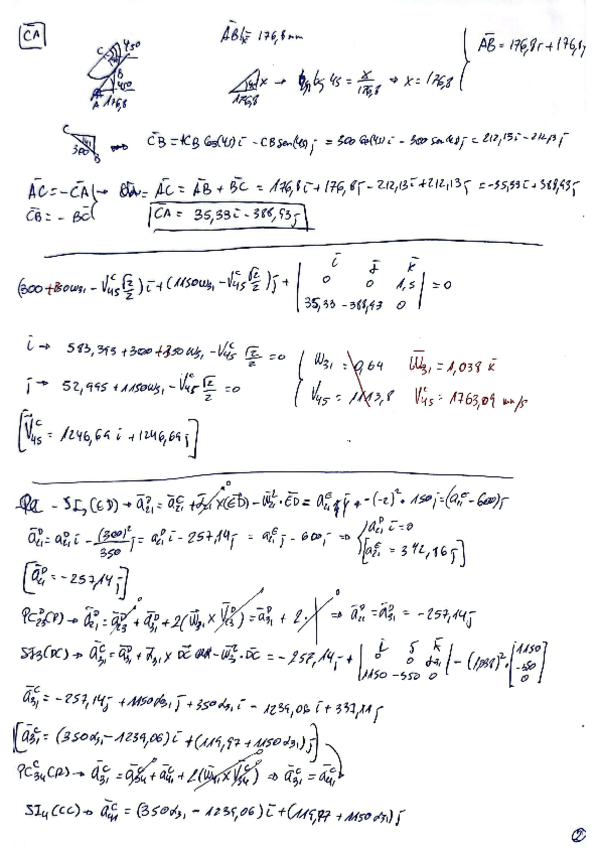 C̄A
ĀB|x = 176,8 mm
ĀB = 176,8i + 176,8j
C 450
B
450
A 176,8
x → tg 45 = x/176,8 ⇒ x = 176,8
176,8
C
300 B
C̄B = CB cos(45)ī - CB sen(45)j = 300 cos(45)ī - 300 sen(45)j = 212,13ī - 212,13j
ĀC = -C̄A
C̄B = -B̄C
ĀC = ĀB + B̄C = 176,8ī + 176,8j - 212,13ī + 212,13j = -35,33ī + 388,93j
C̄A = 35,33ī - 388,93j
(300 + 350ω₃₁ - V₄₅ᶜ √2/2)ī + (1150ω₃₁ - V₄₅ᶜ √2/2)j + | ī j k̄ | = 0
0 0 1,5
35,33 -388,93 0
ī → 583,395 + 300 + 350ω₃₁ - V₄₅ᶜ √2/2 = 0
j → 52,995 + 1150ω₃₁ - V₄₅ᶜ √2/2 = 0
ω₃₁ = 0,64
V₄₅ = 1113,8
ω̄₃₁ = 1,038 k̄
V₄₅ᶜ = 1763,09 mm/s
[V̄₄₅ᶜ = 1246,69ī + 1246,69j]
(ED) → ā₂₁ᴰ = ā₂₁ᴱ + ᾱ₂₁ × (ĒD) - ω̄₂₁² · ĒD = a₂₁ᴱ j - (-2)² · 150j = (a₂₁ᴱ - 600)j
ā₂₁ᴰ = a₂₁ᴰ ī - (300)²/350 j = a₂₁ᴰ ī - 257,14j = a₂₁ᴱ j - 600j ⇒ { a₂₁ᴰ ī = 0
[a₂₁ᴱ = 342,86j]
[ā₂₁ᴰ = -257,14j]
PC₂₃ᴰ(D) → ā₂₁ᴰ = ā₂₃ᴰ + ā₃₁ᴰ + 2(ω̄₃₁ × V̄₂₃ᴰ) = ā₃₁ᴰ + 2· ⇒ ā₂₁ᴰ = ā₃₁ᴰ = -257,14j
SI₃(DC) → ā₃₁ᶜ = ā₃₁ᴰ + ᾱ₃₁ × D̄C - ω̄₃₁² · D̄C = -257,14j + | ī j k̄ | - (1,038)² · [1150
0 0 α₃₁ -350
1150 -350 0 0]
ā₃₁ᶜ = -257,14j + 1150α₃₁j + 350α₃₁ī - 1239,06ī + 377,11j
[ā₃₁ᶜ = (350α₃₁ - 1239,06)ī + (119,97 + 1150α₃₁)j]
PC₃₄ᶜ(C) → ā₃₁ᶜ = ā₃₄ᶜ + ā₄₁ᶜ + 2(ω̄₄₁ × V̄₃₄ᶜ) ⇒ ā₃₁ᶜ = ā₄₁ᶜ
SI₄(CC) → ā₄₁ᶜ = (350α₃₁ - 1239,06)ī + (119,97 + 1150α₃₁)j
2